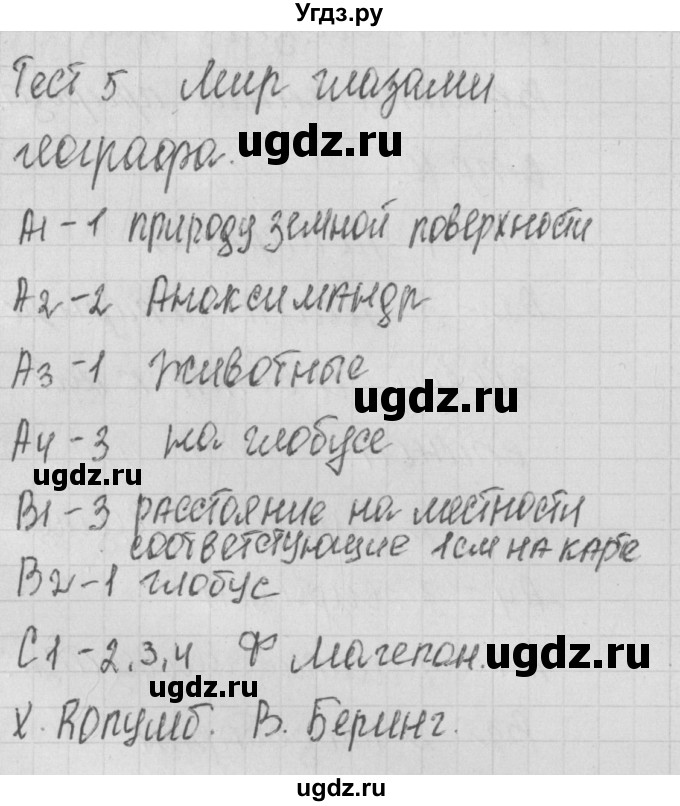 Угдз.ру
Тест 5 Мир глазами
географа.
ugdz.ru
А1-1 природу земной поверхности
А2-2 Аноксимандр
А3-1 животные
ugdz.ru
А4-3 на глобусе
ugdz.ru
В1-3 расстояние на местности
соответстующие 1см на карте
В2-1 глобус
С1-2,3,4 Ф Магелон.
ugdz.ru
ugdz.ru
Х. Колумб. В. Беринг.
ugdz.ru